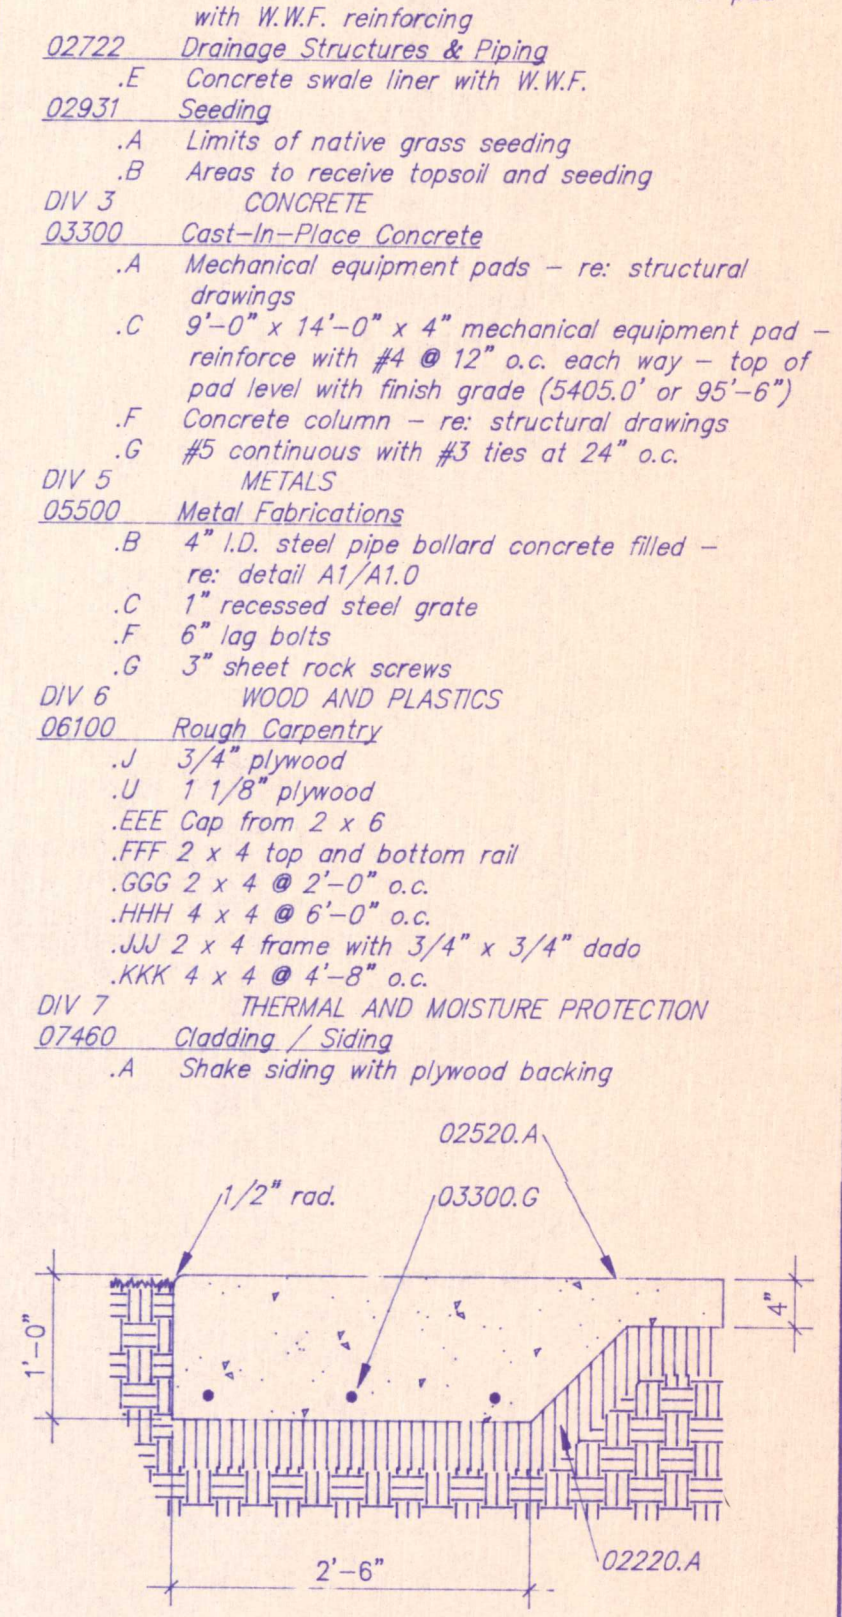 with W.W.F. reinforcing
02722 Drainage Structures & Piping
.E Concrete swale liner with W.W.F.
02931 Seeding
.A Limits of native grass seeding
.B Areas to receive topsoil and seeding
DIV 3 CONCRETE
03300 Cast-In-Place Concrete
.A Mechanical equipment pads – re: structural
drawings
.C 9'-0" x 14'-0" x 4" mechanical equipment pad –
reinforce with #4 @ 12" o.c. each way – top of
pad level with finish grade (5405.0' or 95'-6")
.F Concrete column – re: structural drawings
.G #5 continuous with #3 ties at 24" o.c.
DIV 5 METALS
05500 Metal Fabrications
.B 4" I.D. steel pipe bollard concrete filled –
re: detail A1/A1.0
.C 1" recessed steel grate
.F 6" lag bolts
.G 3" sheet rock screws
DIV 6 WOOD AND PLASTICS
06100 Rough Carpentry
.J 3/4" plywood
.U 1 1/8" plywood
.EEE Cap from 2 x 6
.FFF 2 x 4 top and bottom rail
.GGG 2 x 4 @ 2'-0" o.c.
.HHH 4 x 4 @ 6'-0" o.c.
.JJJ 2 x 4 frame with 3/4" x 3/4" dado
.KKK 4 x 4 @ 4'-8" o.c.
DIV 7 THERMAL AND MOISTURE PROTECTION
07460 Cladding / Siding
.A Shake siding with plywood backing
02520.A
1/2" rad.
03300.G
1'-0"
4"
2'-6"
02220.A